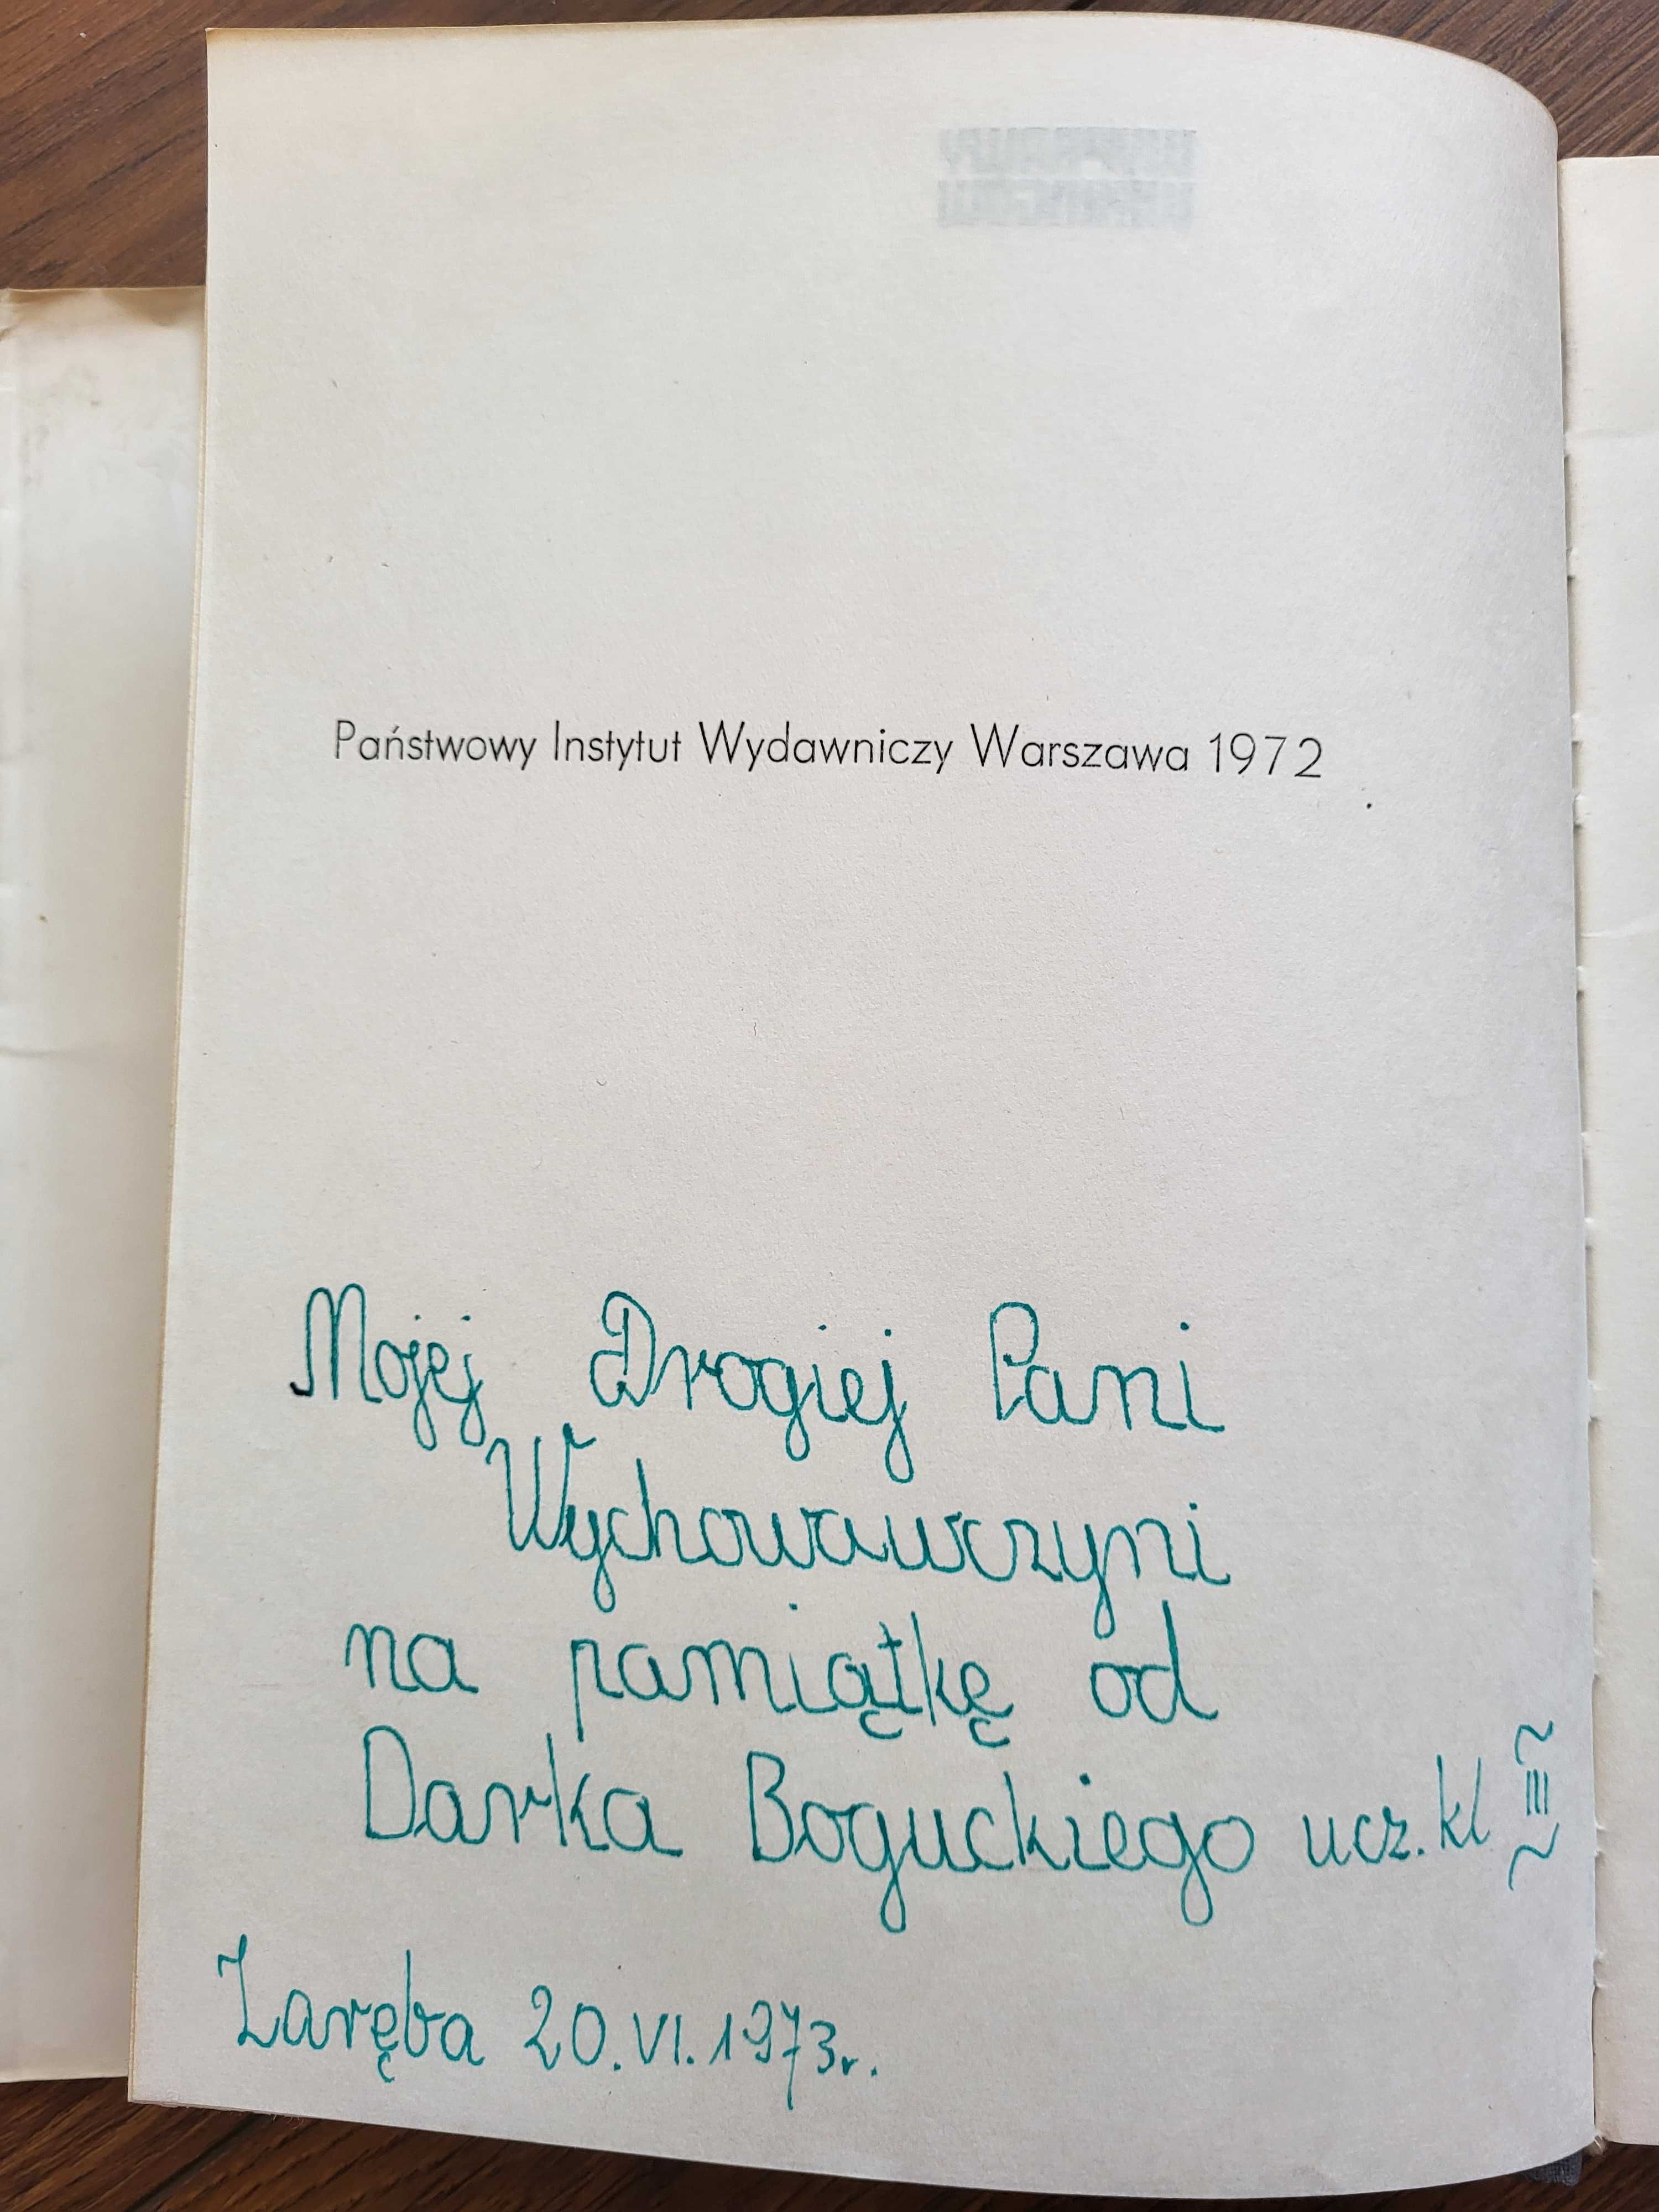 Państwowy Instytut Wydawniczy Warszawa 1972
Mojej Drogiej Pani
Wychowawczyni
na pamiątkę od
Darka Boguckiego ucz. kl III
Zaręba 20.VI.1973r.